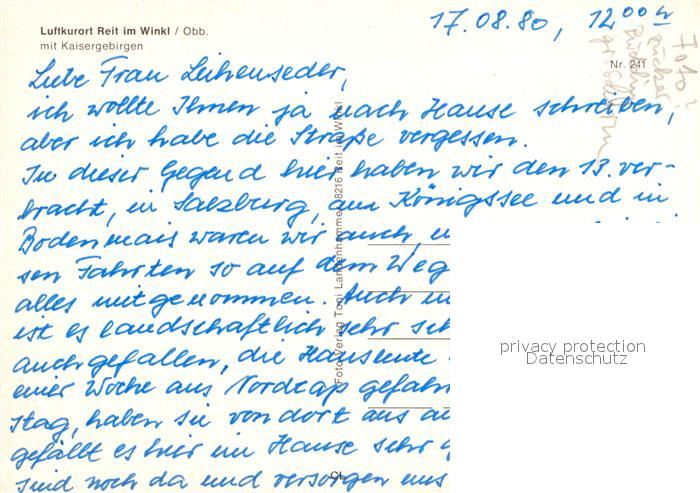 Luftkurort Reit im Winkl / Obb.
mit Kaisergebirgen
17.08.80, 12.00 h
Nr. 241
Liebe Frau Leihenseder,
ich wollte Ihnen ja nach Hause schreiben,
aber ich habe die Straße vergessen.
In dieser Gegend hier haben wir den 13. ver-
bracht, in Salzburg, am Königssee und in
Bodenmais waren wir auch, u
sen Fahrten so auf dem Weg
alles mitgenommen. Auch
ist es landschaftlich sehr sch
auch gefallen, die Hausleute
einer Woche aus Nordcap gefahr
stag, haben sie von dort aus
gefällt es hier im Hause sehr g
sind noch da und versorgen uns
Foto-Verlag Toni Langenhammer, 8216 Reit im Winkl
CL
Foto:
privacy protection
Datenschutz